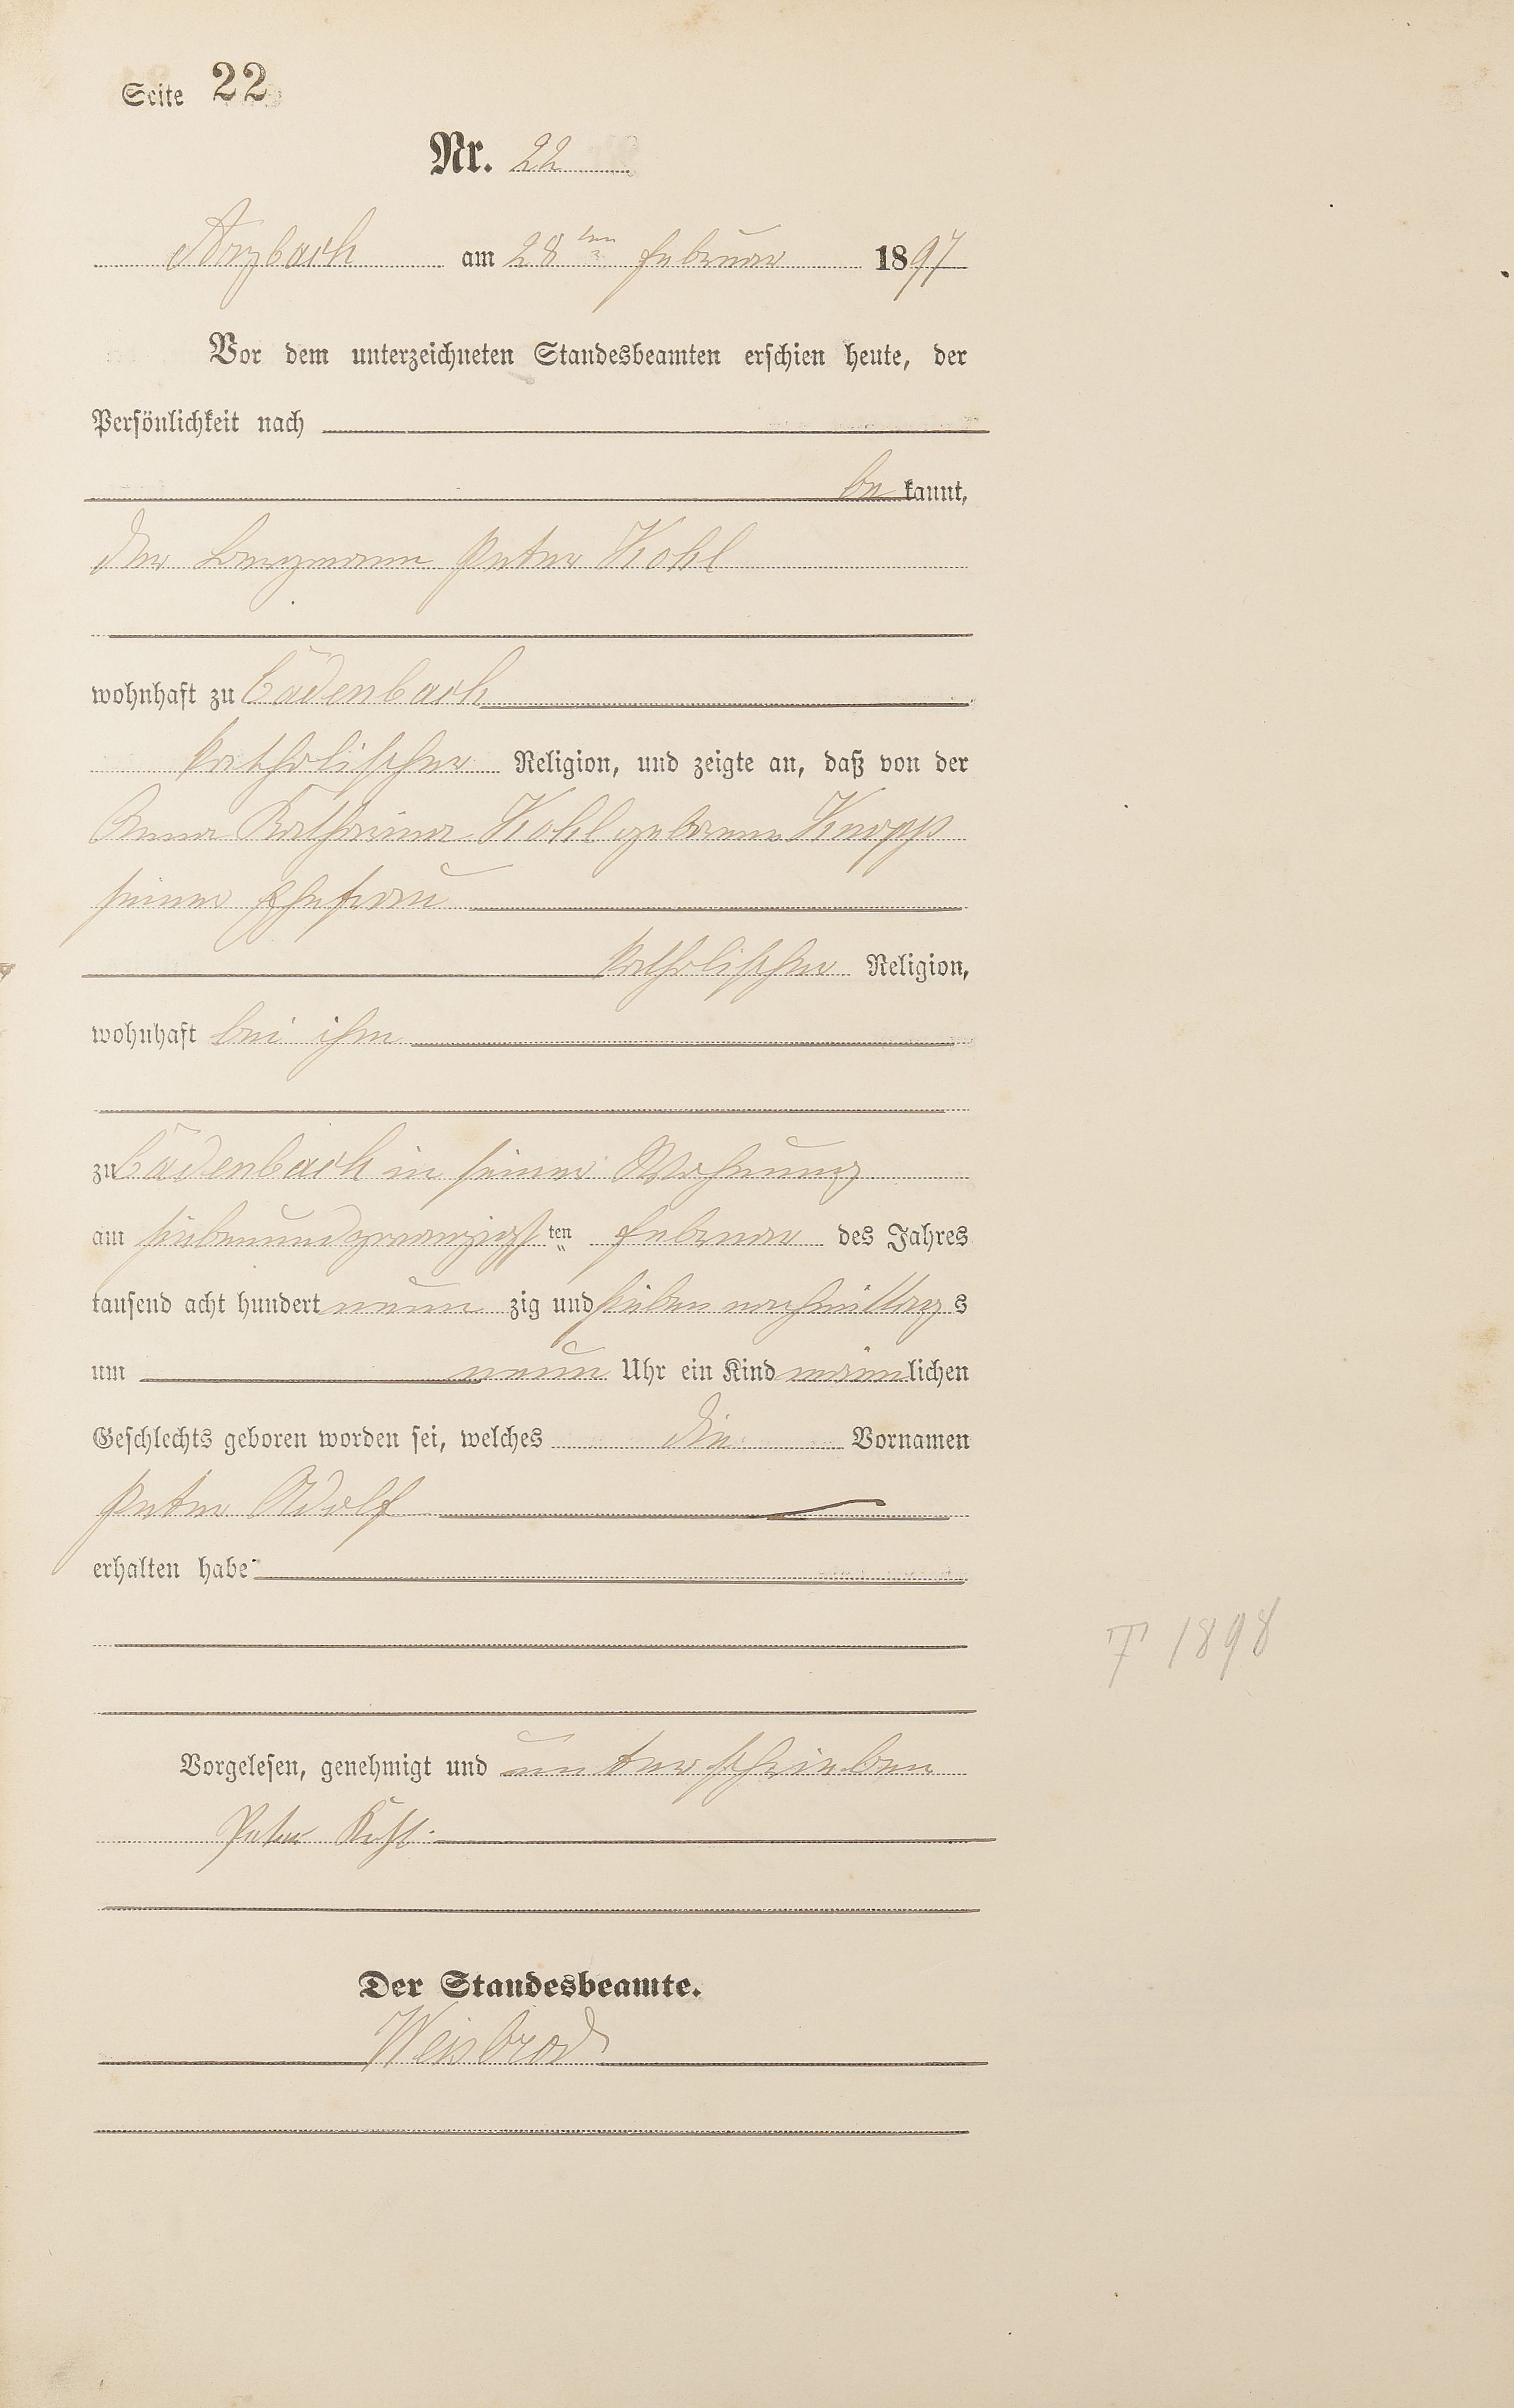 Seite 22
Nr. 22
Arzbach am 28ten Februar 1897
Vor dem unterzeichneten Standesbeamten erschien heute, der
Persönlichkeit nach
be kannt,
der Bergmann Peter Kohl
wohnhaft zu Cadenbach
katholischer Religion, und zeigte an, daß von der
Anna Katharina Kohl geborene Knopp
seiner Ehefrau
katholischer Religion,
wohnhaft bei ihm
zu Cadenbach in seiner Wohnung
am siebenundzwanzigsten Februar des Jahres
tausend acht hundert neun zig und sieben nachmittags
um neun Uhr ein Kind männlichen
Geschlechts geboren worden sei, welches die Vornamen
Peter Adolf
erhalten habe
† 1898
Vorgelesen, genehmigt und unterschrieben
Peter Kohl
Der Standesbeamte.
Weisbrod